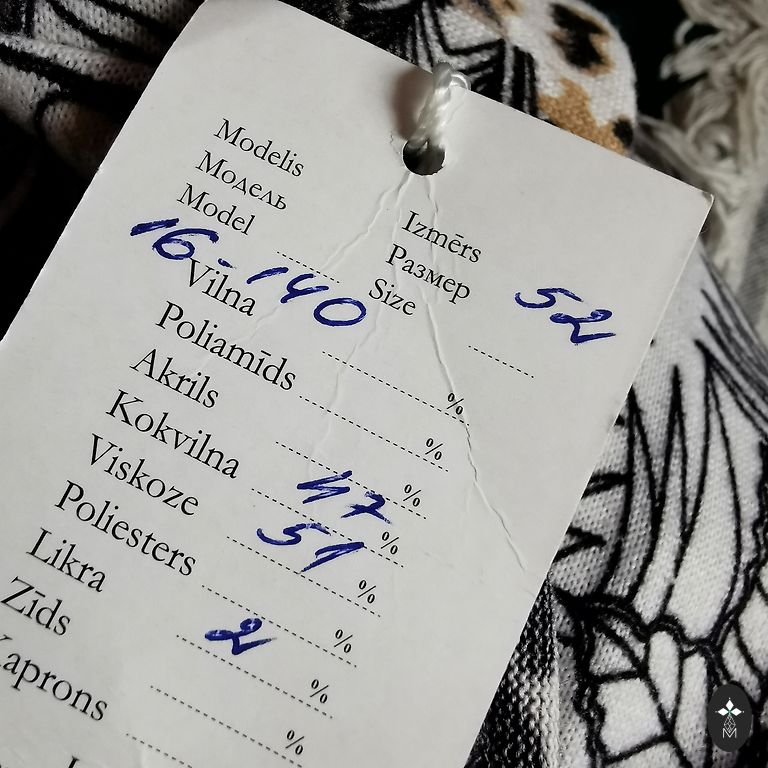 Modelis
Модель
Model 16-140
Izmērs
Размер
Size 52
Vilna %
Poliamīds %
Akrils %
Kokvilna 47 %
Viskoze 51 %
Poliesters %
Likra 2 %
Zīds %
Kaprons
M